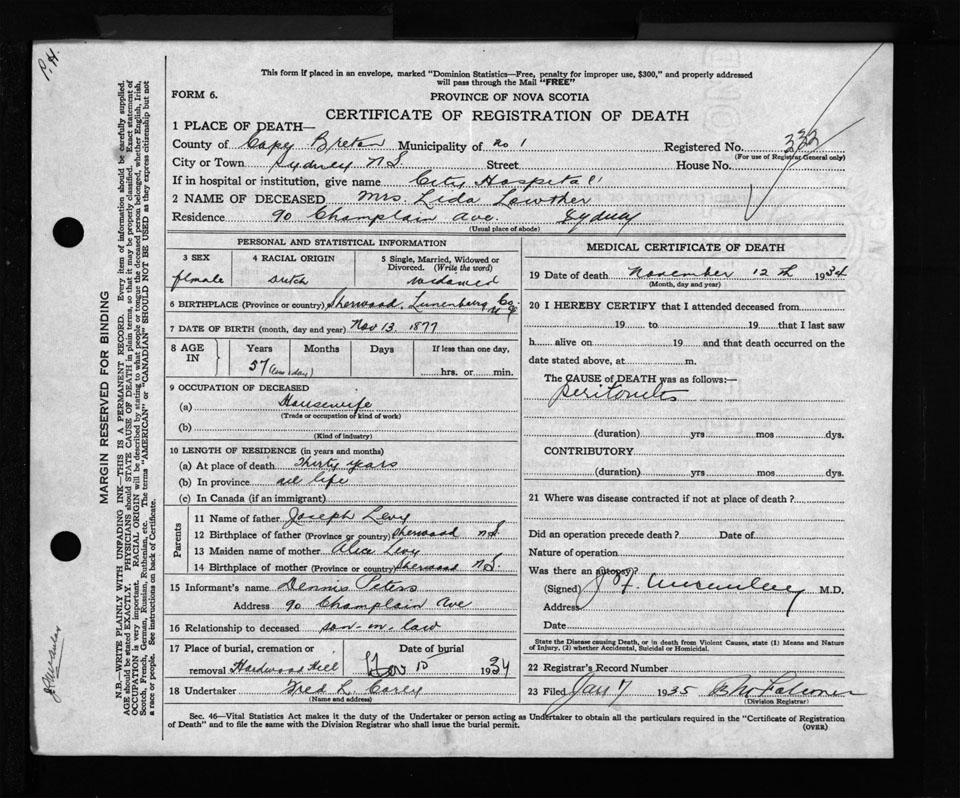 P. H.
This form if placed in an envelope, marked "Dominion Statistics—Free, penalty for improper use, $300," and properly addressed
will pass through the Mail "FREE"
FORM 6.
PROVINCE OF NOVA SCOTIA
CERTIFICATE OF REGISTRATION OF DEATH
1 PLACE OF DEATH—
County of Cape Breton Municipality of No 1 Registered No. 332
(For use of Registrar General only)
City or Town Sydney N S Street House No.
If in hospital or institution, give name City Hospital
2 NAME OF DECEASED Mrs. Lida Lowther
Residence 90 Champlain Ave. Sydney
(Usual place of abode)
PERSONAL AND STATISTICAL INFORMATION
3 SEX 4 RACIAL ORIGIN 5 Single, Married, Widowed or
Divorced. (Write the word)
female Dutch widowed
6 BIRTHPLACE (Province or country) Sherwood, Lunenburg Co.
7 DATE OF BIRTH (month, day and year) Nov 13. 1877
8 AGE IN Years Months Days If less than one day,
57 (less 1 day) hrs. or min.
9 OCCUPATION OF DECEASED
(a) Housewife
(Trade or occupation or kind of work)
(b)
(Kind of industry)
10 LENGTH OF RESIDENCE (in years and months)
(a) At place of death Thirty years
(b) In province all life
(c) In Canada (if an immigrant)
Parents
11 Name of father Joseph Levy
12 Birthplace of father (Province or country) Sherwood N S.
13 Maiden name of mother Alice Levy
14 Birthplace of mother (Province or country) Sherwood N S.
15 Informant's name Dennis Peters
Address 90 Champlain Ave
16 Relationship to deceased son-in-law
17 Place of burial, cremation or removal Hardwood Hill Date of burial Nov 15 1934
18 Undertaker Fred L. Corey
(Name and address)
MEDICAL CERTIFICATE OF DEATH
19 Date of death November 12th 1934
(Month, day and year)
20 I HEREBY CERTIFY that I attended deceased from
19 to 19 that I last saw
h alive on 19 and that death occurred on the
date stated above, at m.
The CAUSE OF DEATH was as follows:—
Peritonitis
(duration) yrs mos dys.
CONTRIBUTORY
(duration) yrs mos dys.
21 Where was disease contracted if not at place of death?
Did an operation precede death? Date of
Nature of operation
Was there an autopsy?
(Signed) M.D.
Address
Date
State the Disease causing Death, or in death from Violent Causes, state (1) Means and Nature
of Injury, (2) whether Accidental, Suicidal or Homicidal.
22 Registrar's Record Number
23 Filed Jan 7 1935
(Division Registrar)
Sec. 46—Vital Statistics Act makes it the duty of the Undertaker or person acting as Undertaker to obtain all the particulars required in the "Certificate of Registration
of Death" and to file the same with the Division Registrar who shall issue the burial permit.
(OVER)
MARGIN RESERVED FOR BINDING
N.B.—WRITE PLAINLY WITH UNFADING INK—THIS IS A PERMANENT RECORD. Every item of information should be carefully supplied.
AGE should be stated EXACTLY. PHYSICIANS should STATE CAUSE OF DEATH in plain terms, so that it may be properly classified. Exact statement of
OCCUPATION is very important. RACIAL ORIGIN will be described by stating to what people or tongue the deceased person belonged, whether English, Irish,
Scotch, French, German, Russian, Ruthenian, etc. The terms "AMERICAN" or "CANADIAN" SHOULD NOT BE USED as they express citizenship but not
a race or people. See instructions on back of Certificate.